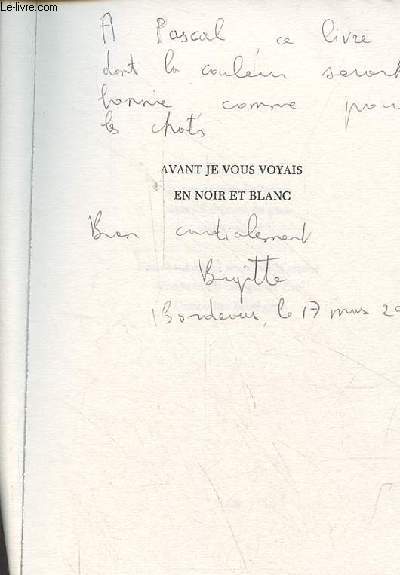 Le-livre.com
A Pascal, ce livre
dont la couleur serait
bannie comme pour
les chats
AVANT JE VOUS VOYAIS
EN NOIR ET BLANC
Bien cordialement
Brigitte
Bordeaux, le 17 mars 20